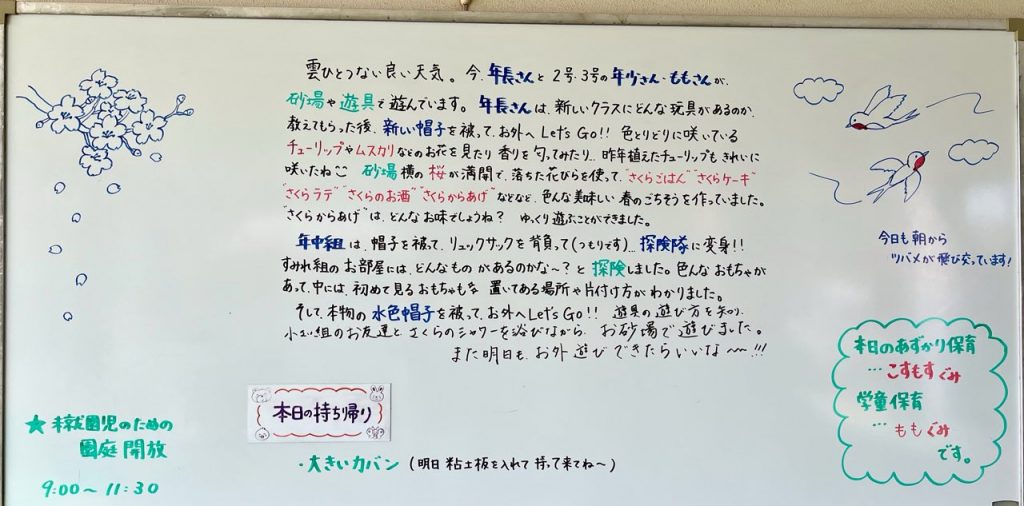 雲ひとつない良い天気。今、年長さんと2号・3号の年少さん・ももさんが、
砂場や遊具で遊んでいます。年長さんは、新しいクラスにどんな玩具があるのか、
教えてもらった後、新しい帽子を被って、お外へLet's Go!! 色とりどりに咲いている
チューリップやムスカリなどのお花を見たり香りを匂ってみたり…昨年植えたチューリップもきれいに
咲いたね 砂場横の桜が満開で、落ちた花びらを使って、"さくらごはん""さくらケーキ"
"さくらラテ""さくらのお酒""さくらからあげ"などなど、色んな美味しい春のごちそうを作っていました。
"さくらからあげ"は、どんなお味でしょうね? ゆっくり遊ぶことができました。
年中組は、帽子を被って、リュックサックを背負って(つもりです)…探険隊に変身!!
すみれ組のお部屋には、どんなものがあるのかな〜?と探険しました。色んなおもちゃが
あって、中には、初めて見るおもちゃも 置いてある場所や片付け方がわかりました。
そして、本物の水色帽子を被って、お外へLet's Go!! 遊具の遊び方を知り、
組のお友達と、さくらのシャワーを浴びながら、お砂場で遊びました。
また明日も、お外遊びできたらいいな〜!!!
今日も朝から
ツバメが飛び交っています!
本日のあずかり保育
…こすもすぐみ
学童保育
…ももぐみ
です。
本日の持ち帰り
・大きいカバン(明日粘土板を入れて持って来てね〜)
★未就園児のための
園庭開放
9:00〜11:30